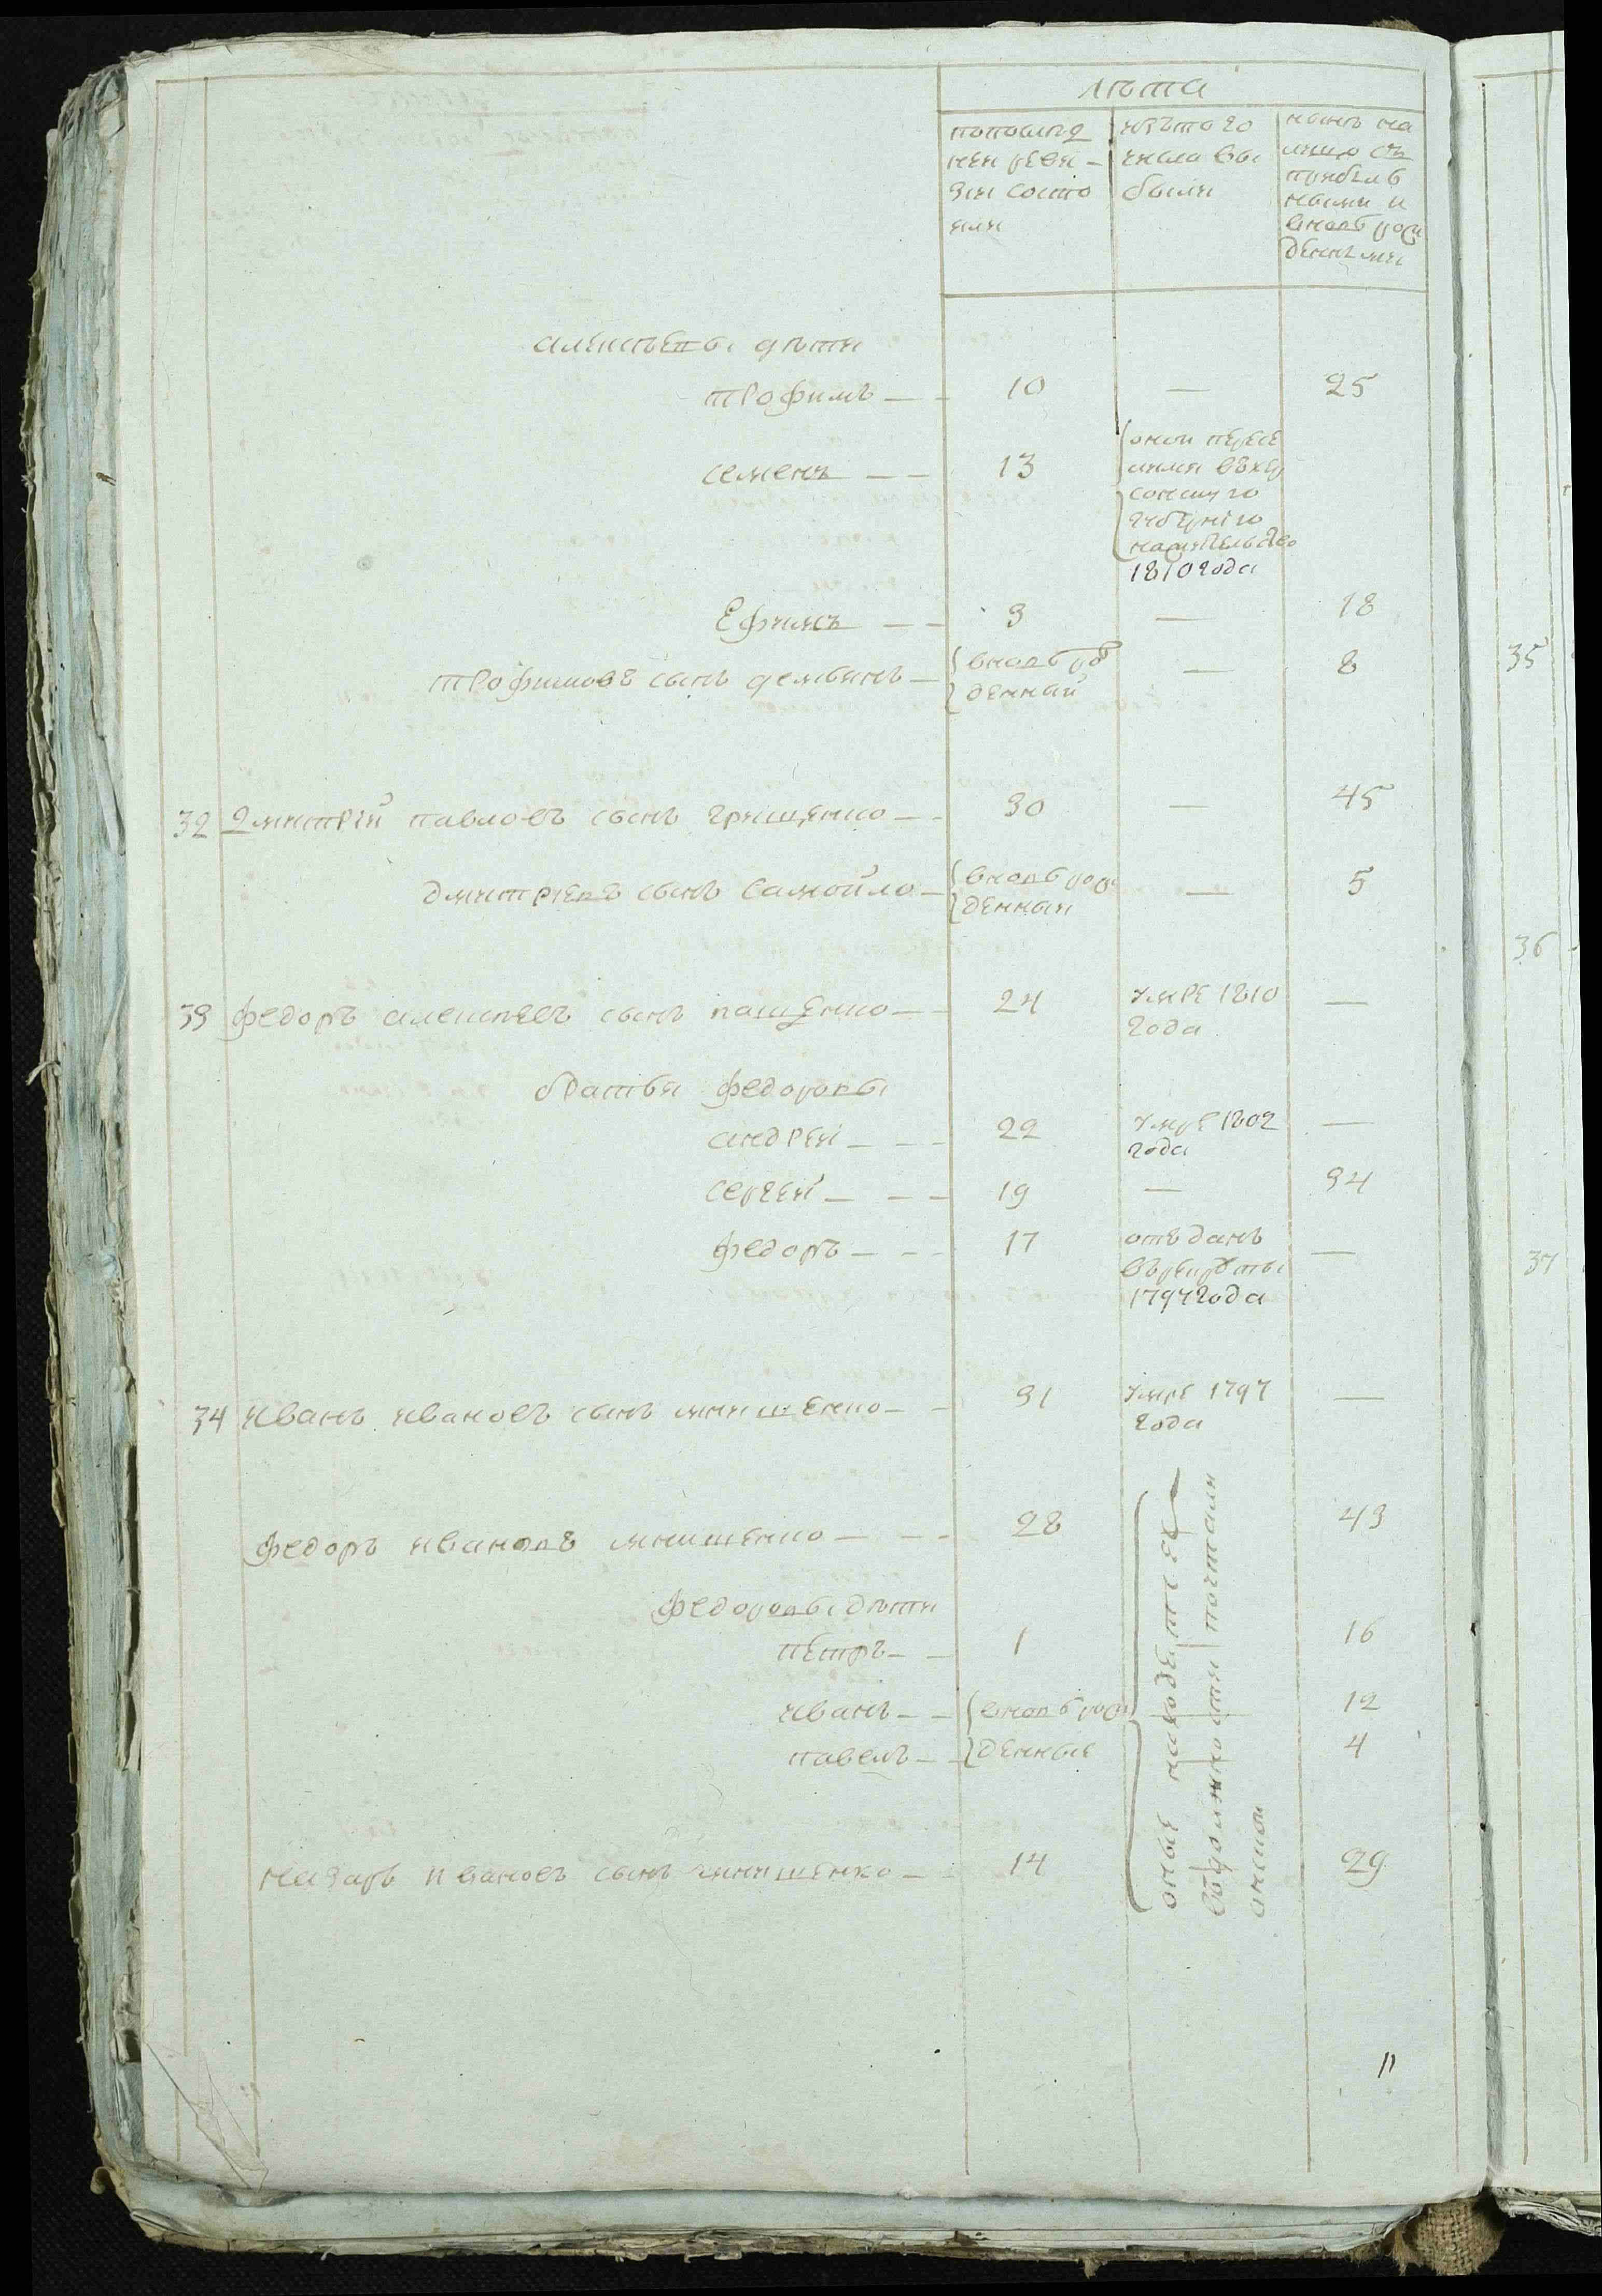 лѣта
попослед
ней реви-
зіи состо
яли
изътого
числа вы
были
нынѣ на
лицо съ
прибыв
ными и
вновь рож
денными
алексѣевы дѣти
трофимъ — — 10 — 25
семенъ — — 13
оной пересе
лился въхер
сонскую
губернію
на жительство
1810 года
Ефимъ — — 3 — 18
трофимовъ сынъ демьянъ — вновь рож
денный — 8
35
32 дмитрій павловъ сынъ грищенко — — 30 — 45
дмитріевъ сынъ самойло — вновь рож
денный — 5
36
33 федоръ алексѣевъ сынъ пащенко — — 24 умре 1810
года —
братья федоровы
андрей — — — 22 умре 1802
года —
сергей — — — 19 — 34
федоръ — — — 17 отъданъ
върекруты
1797 года —
37
34 иванъ ивановъ сынъ мнишенко — — 31 умре 1797
года —
федоръ ивановъ мнишенко — — — 28 43
федоровы дѣти
петръ — — 1 16
иванъ — — вновь рож — 12
павелъ — — денные — 4
назаръ ивановъ сынъ мнишенко — — 14 29
оные находятся
въдолжности почтали
онской
11